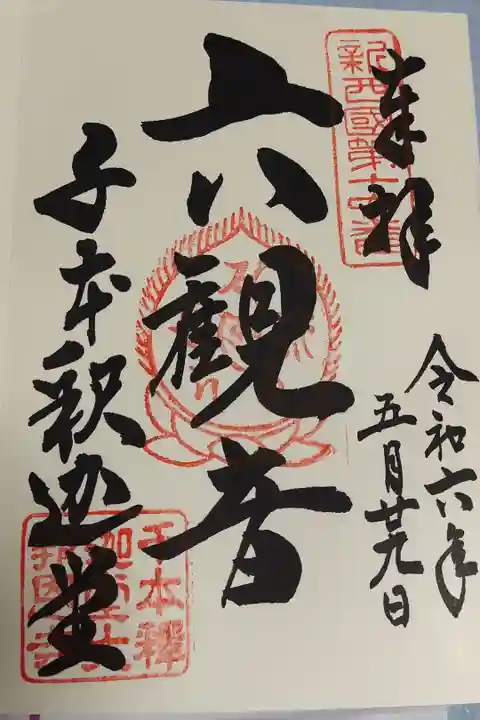 奉拝
新西國第十六番
令和六年
五月廿九日
六観音
千本釈迦堂
千本釋
迦堂大
報恩寺